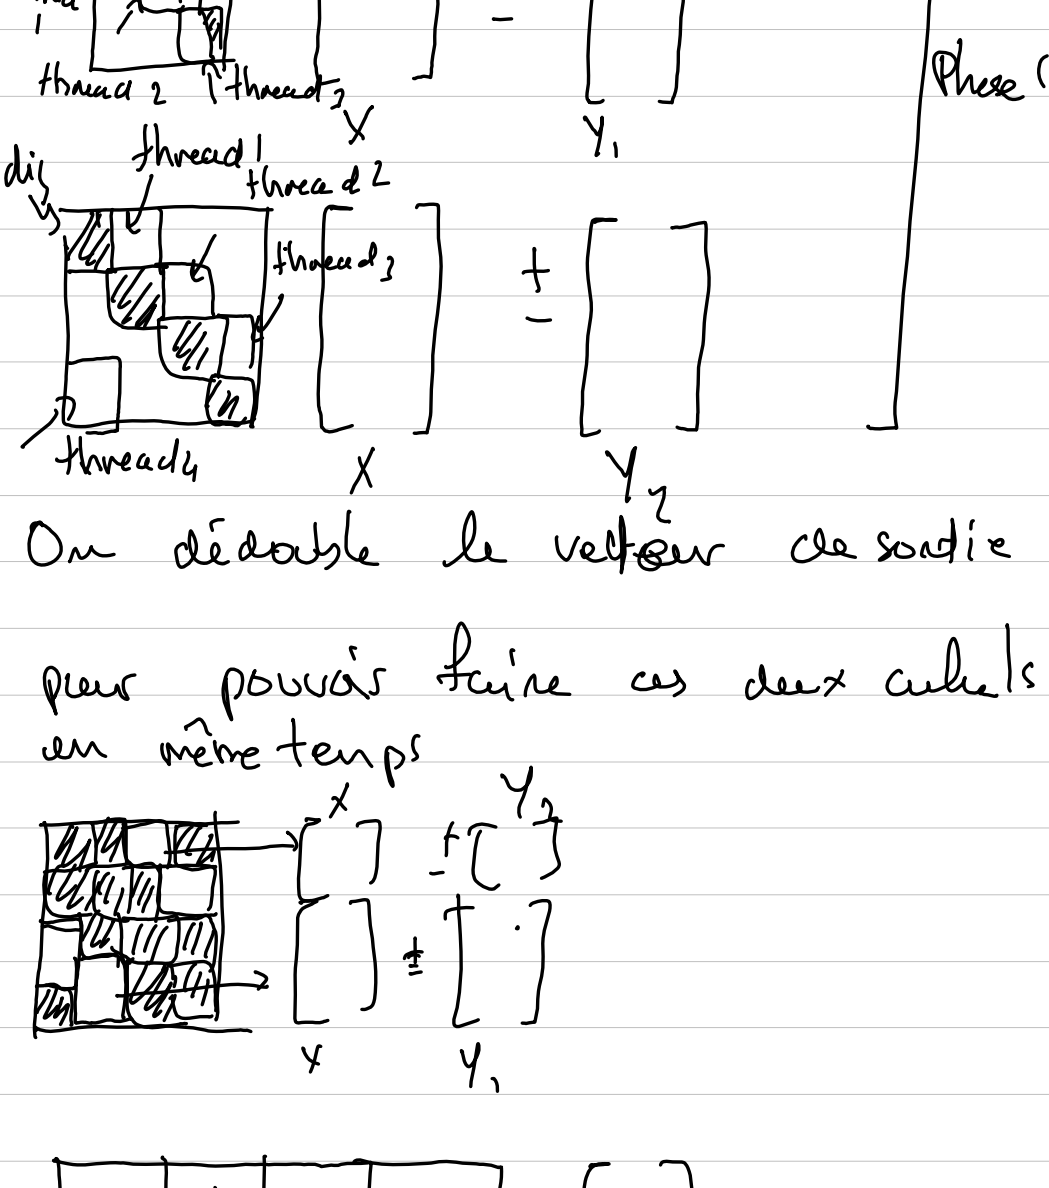 thread 2 thread 3
X
Y1
Phase (
thread 1
thread 2
thread 3
+
−
thread 4
X
Y2
On dédouble le vecteur de sortie
pour pouvoir faire ces deux calculs
en même temps
X
Y2
+
−
±
X
Y1